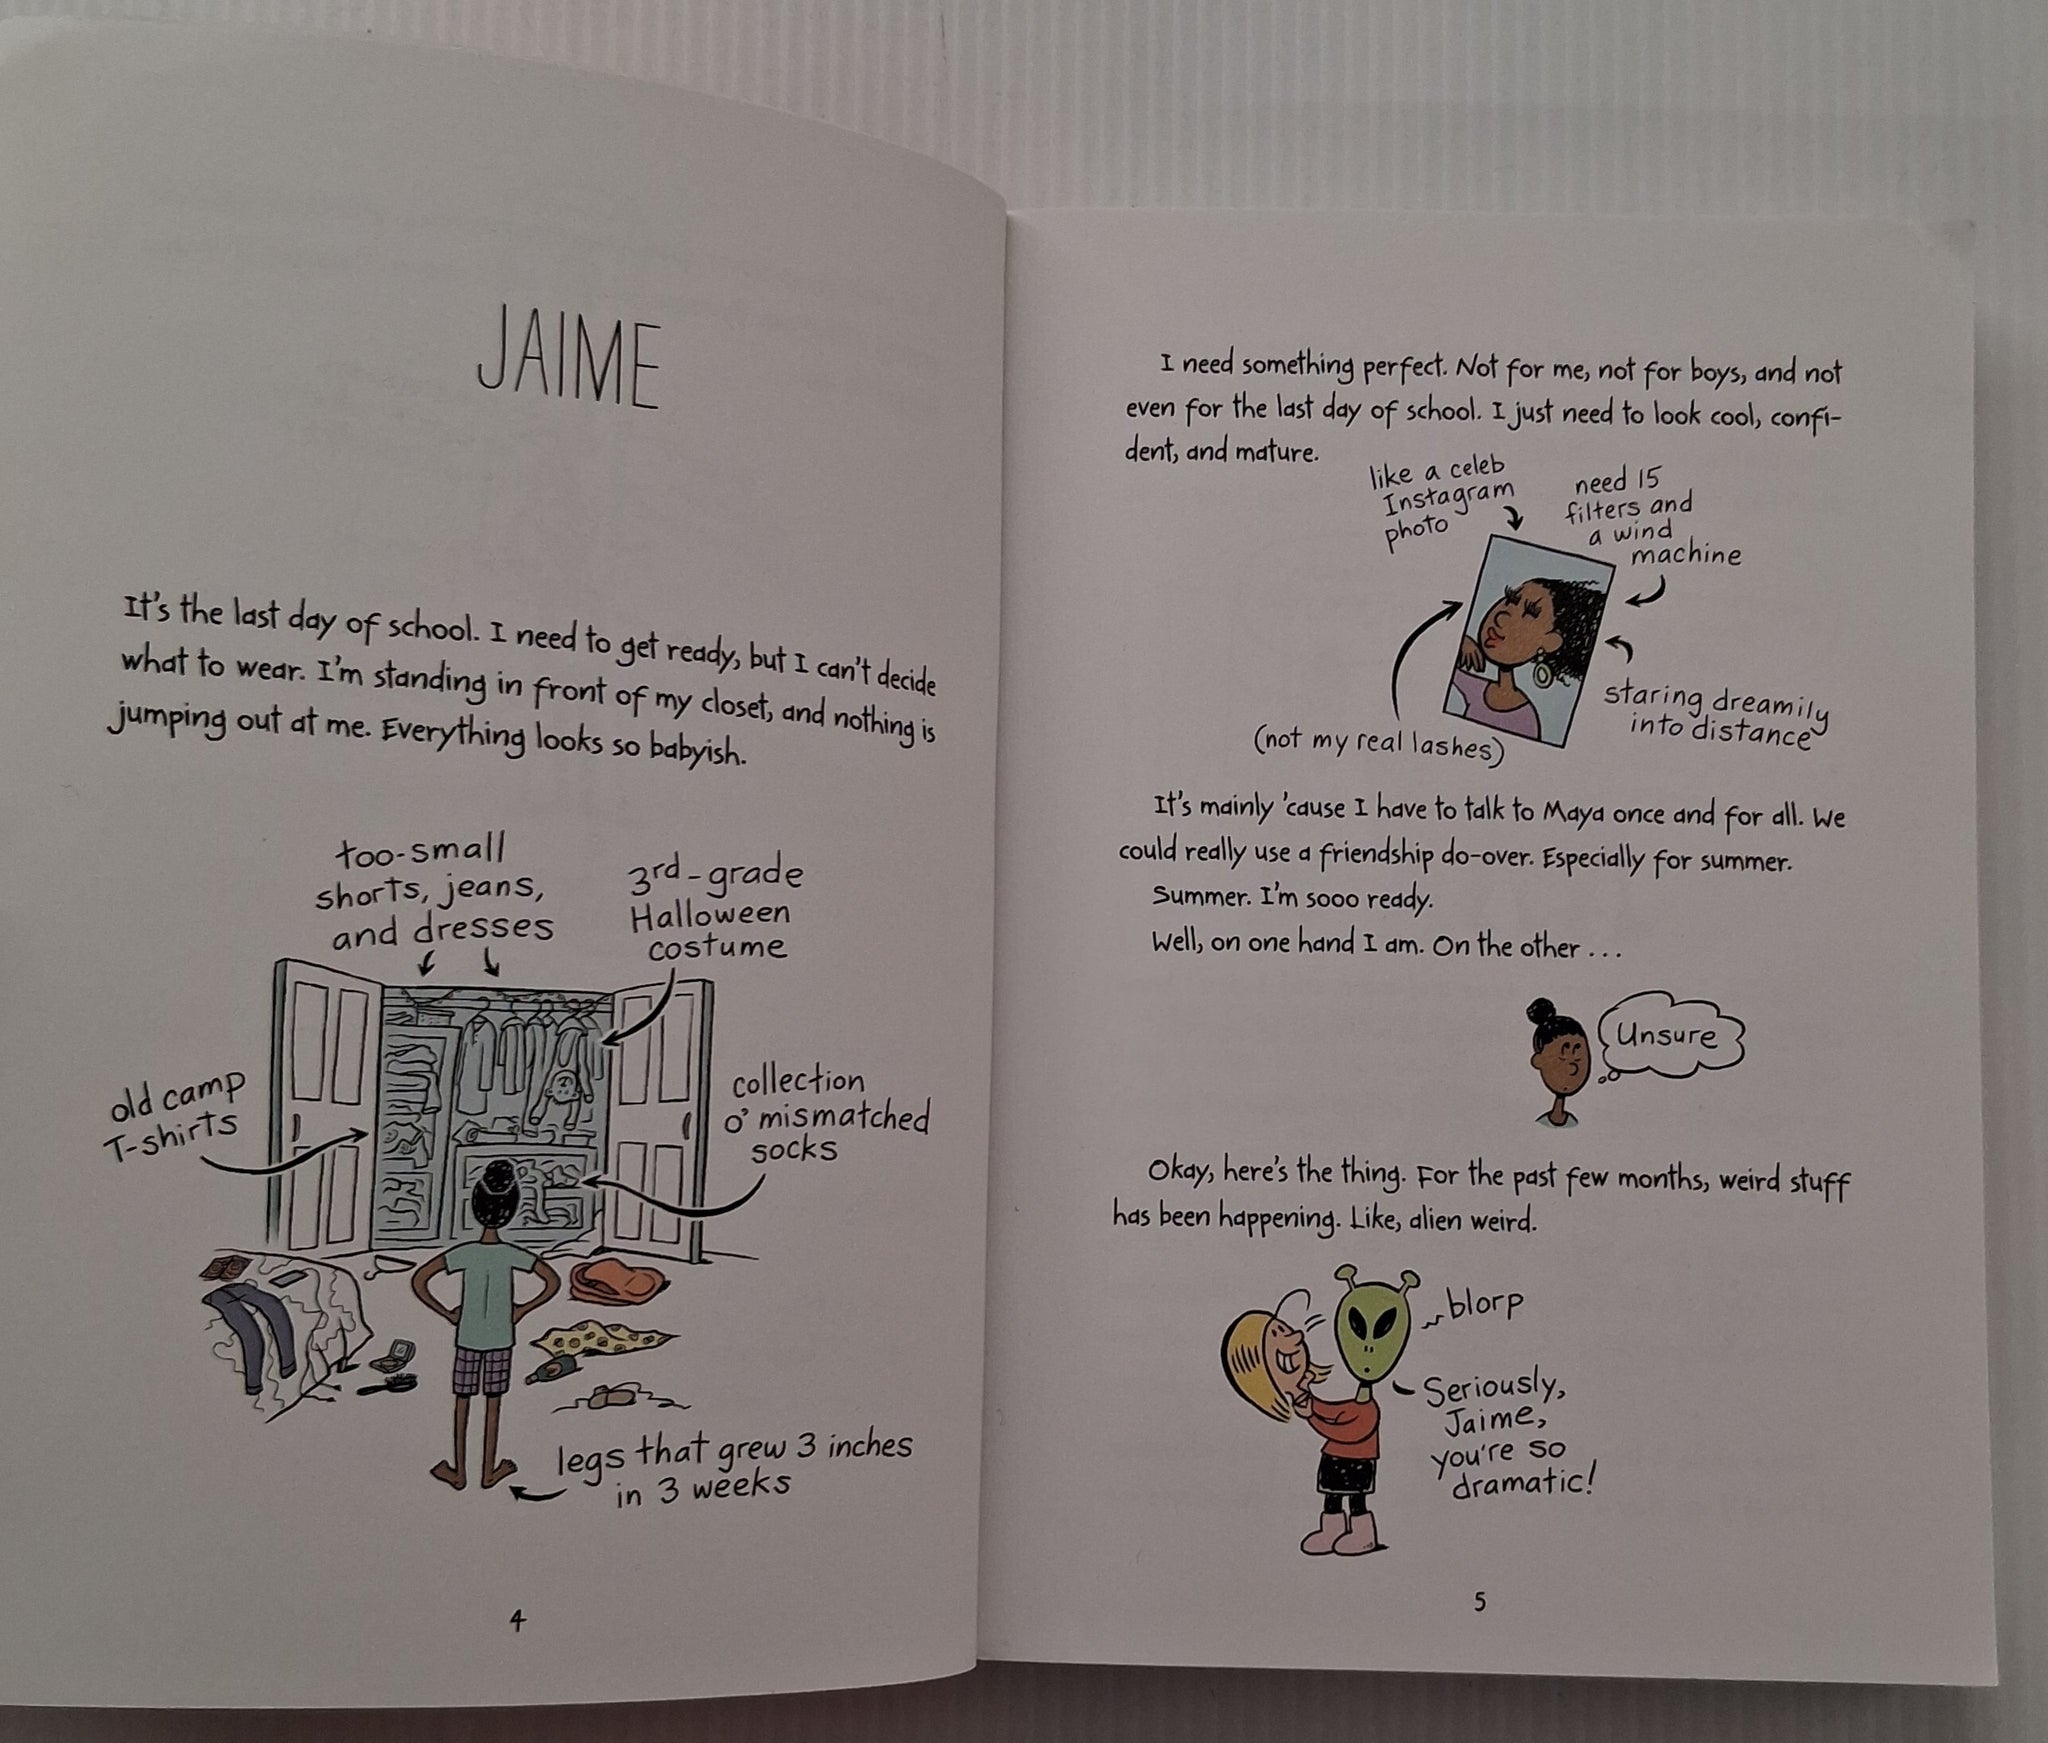 JAIME
It's the last day of school. I need to get ready, but I can't decide
what to wear. I'm standing in front of my closet, and nothing is
jumping out at me. Everything looks so babyish.
too-small
shorts, jeans,
and dresses
3rd-grade
Halloween
costume
old camp
T-shirts
collection
o' mismatched
socks
legs that grew 3 inches
in 3 weeks
4
I need something perfect. Not for me, not for boys, and not
even for the last day of school. I just need to look cool, confi-
dent, and mature.
like a celeb
Instagram
photo
need 15
filters and
a wind
machine
(not my real lashes)
staring dreamily
into distance
It's mainly 'cause I have to talk to Maya once and for all. We
could really use a friendship do-over. Especially for summer.
Summer. I'm sooo ready.
Well, on one hand I am. On the other ...
Unsure
Okay, here's the thing. For the past few months, weird stuff
has been happening. Like, alien weird.
blorp
Seriously,
Jaime,
you're so
dramatic!
5